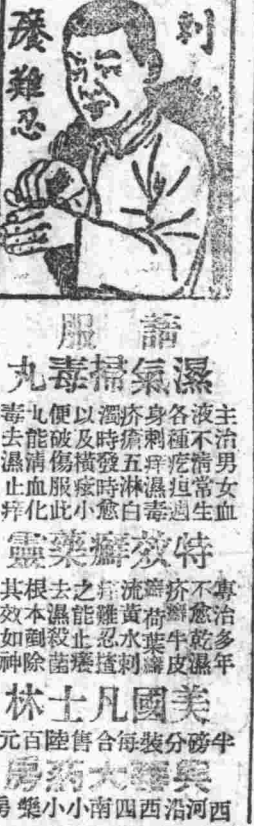 刺
癢難忍
請服
濕氣掃毒丸
主治男女血
液不清常生
各種疙疸週
身刺痒濕毒
疥瘡五淋白
濁時發時愈
以及橫痃小
便破傷服此
丸能清血化
毒去濕止痒
特效癬藥靈
專治多年
不愈乾濕
疥癬牛皮
癬荷葉癬
流黃水刺
痒難忍
之能止癢
去濕殺菌
根本剷除
其效如神
美國凡士林
半磅分裝每合售陸百元
興華大葯房
西河沿西四南小